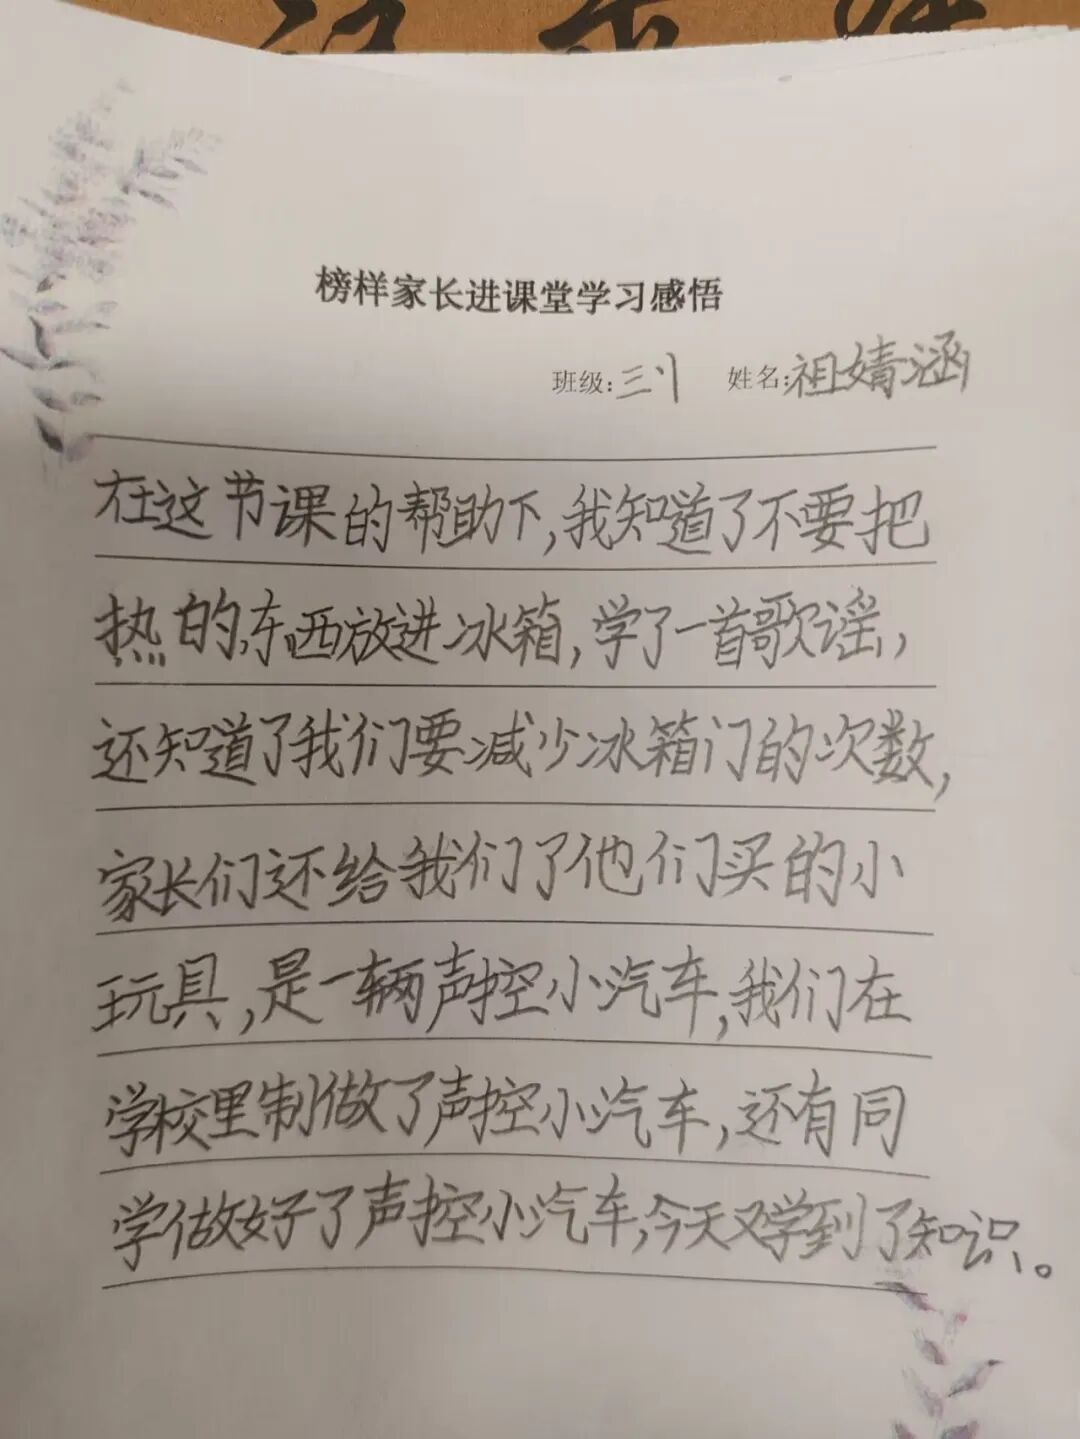 榜样家长进课堂学习感悟
班级:三1 姓名:祖婧涵
在这节课的帮助下,我知道了不要把
热的东西放进冰箱,学了一首歌谣,
还知道了我们要减少冰箱门的次数,
家长们还给我们了他们买的小
玩具,是一辆声控小汽车,我们在
学校里制做了声控小汽车,还有同
学做好了声控小汽车,今天又学到了知识。